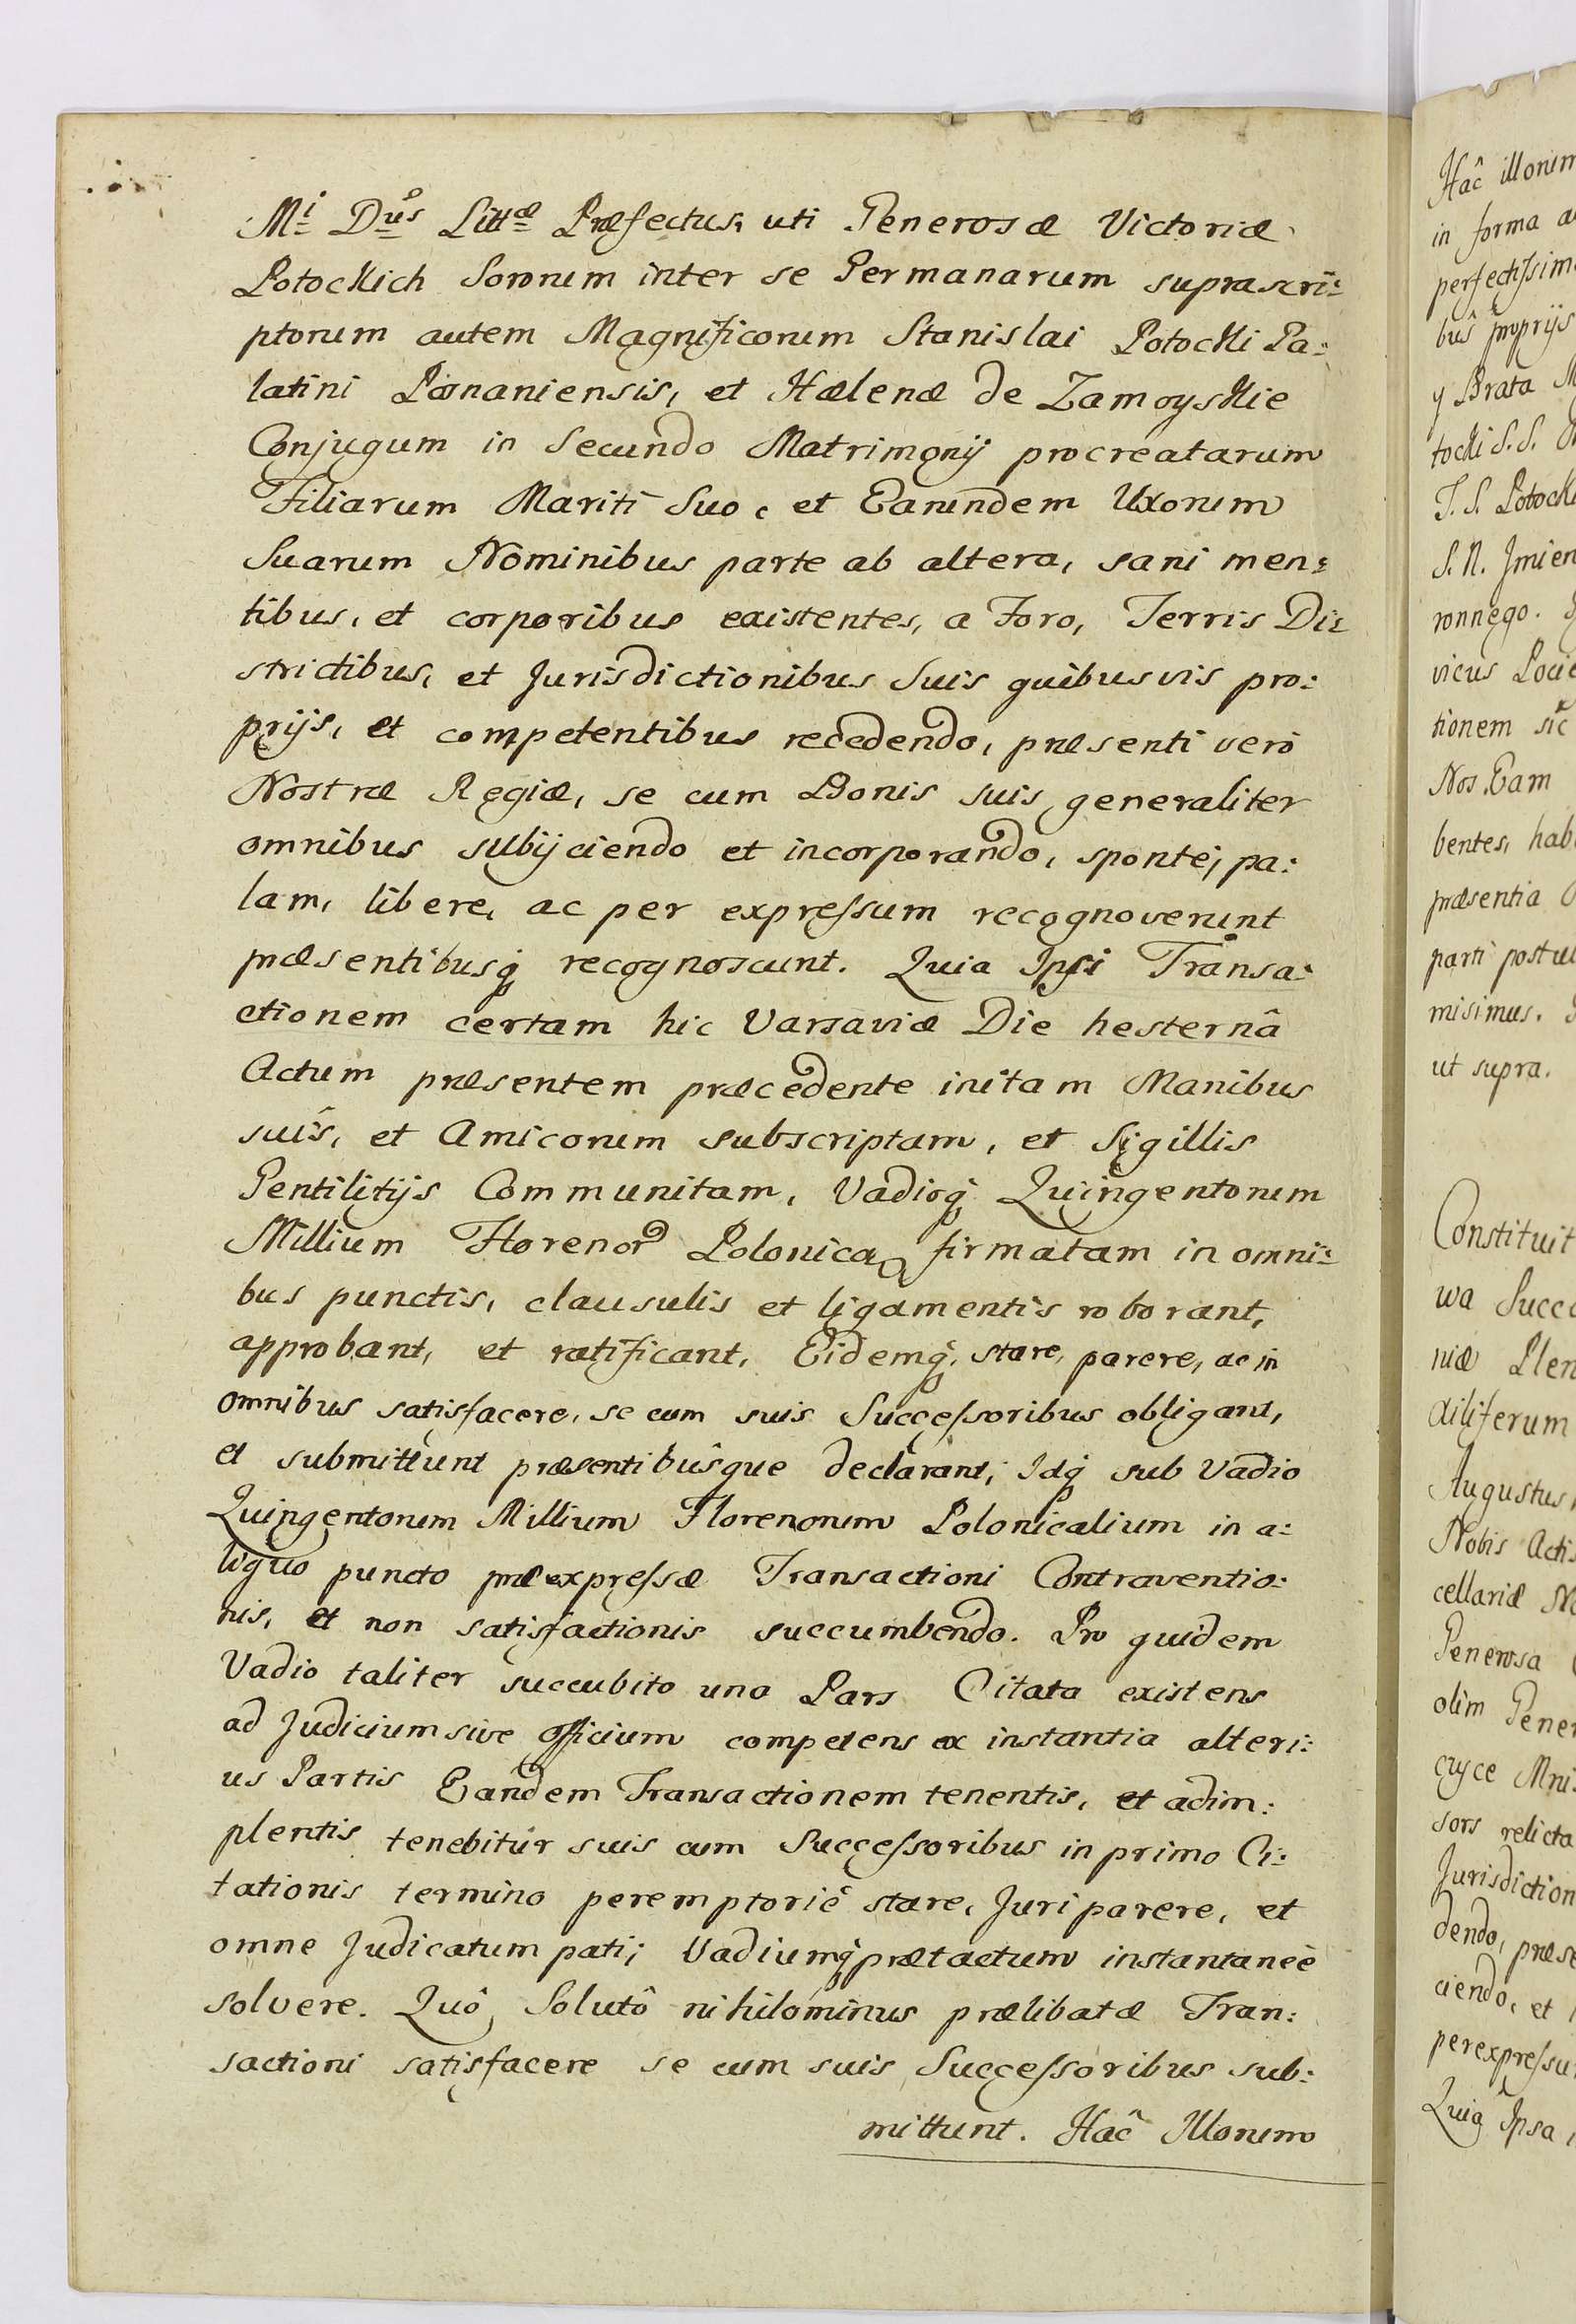 Mi Dus Littæ Præfectus, uti Generosæ Victoriæ
Potockich Sororum inter se Germanarum suprascri:
ptorum autem Magnificorum Stanislai Potocki Pa:
latini Posnaniensis, et Hælenæ de Zamoyskie
Conjugum in Secundo Matrimonij procreatarum
Filiarum Mariti Suo, et Earundem Uxorum
Suarum Nominibus parte ab altera, sani men:
tibus, et corporibus existentes, a Foro, Terris Di:
strictibus, et Jurisdictionibus Suis quibusvis pro:
prijs, et competentibus recedendo, præsenti verò
Nostræ Regiæ, se cum Bonis suis generaliter
omnibus subijciendo et incorporando, sponte, pa:
lam, libere, ac per expressum recognoverunt
præsentibusq recognoscunt. Quia Ipsi Transa:
ctionem certam hic Varsaviæ Die hesternâ
Actum præsentem præcedente initam Manibus
suis, et Amicorum subscriptam, et Sigillis
Gentilitijs Communitam, Vadioq Quingentorum
Millium Florenor Polonica firmatam in omni:
bus punctis, clausulis et ligamentis roborant,
approbant, et ratificant, Eidemq, stare, parere, ac in
omnibus satisfacere, se cum suis Successoribus obligant,
et submittunt præsentibusque declarant, Idq sub Vadio
Quingentorum Millium Florenorum Polonicalium in a:
liquo puncto præexpressæ Transactioni Contraventio:
nis, et non satisfactionis succumbendo. Pro quidem
Vadio taliter succubito una Pars Citata existens
ad Judicium sive Officium competens ex instantia alteri:
us Partis Eandem Transactionem tenentis, et adim:
plentis tenebitur suis cum Successoribus in primo Ci:
tationis termino peremptoriè stare, Juri parere, et
omne Judicatum pati; Vadiumq prætactum instantaneè
solvere. Quô Solutô nihilominus prælibatæ Tran:
sactioni satisfacere se cum suis Successoribus sub:
mittunt. Hac Illorum
Hac illorum
in forma
perfectissim
bus proprijs
y Brata
tocki S. S.
J. S. Potock
S. N. Jmien
ronnego.
vicus Pocie
tionem sic
Nos Eam
bentes, hab
præsentia
parti postul
misimus.
ut supra.
Constituit
wa Succ
niæ Plen
Augustus
Nobis Actis
cellariæ
Generosa
olim Gener
sors relicta
Jurisdiction
dendo, præse
ciendo, et
per expressu
Quia Ipsa